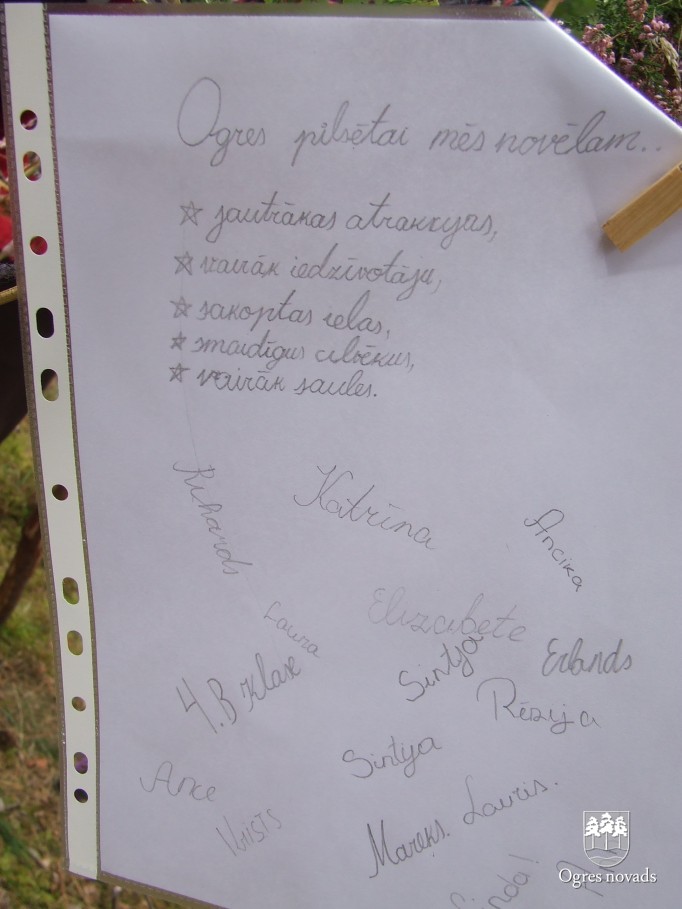 Ogres pilsētai mēs novēlam..
☆ jautrākas atrakcijas,
☆ vairāk iedzīvotāju,
☆ sakoptas ielas,
☆ smaidīgus cilvēkus,
☆ vairāk saules.
Richards
Katrīna
Ancika
Elizabete
Laura
Sintija
Erlands
4.B klase
Rēzija
Sintija
Ance
Krists
Mareks.
Lauris.
Ogres novads